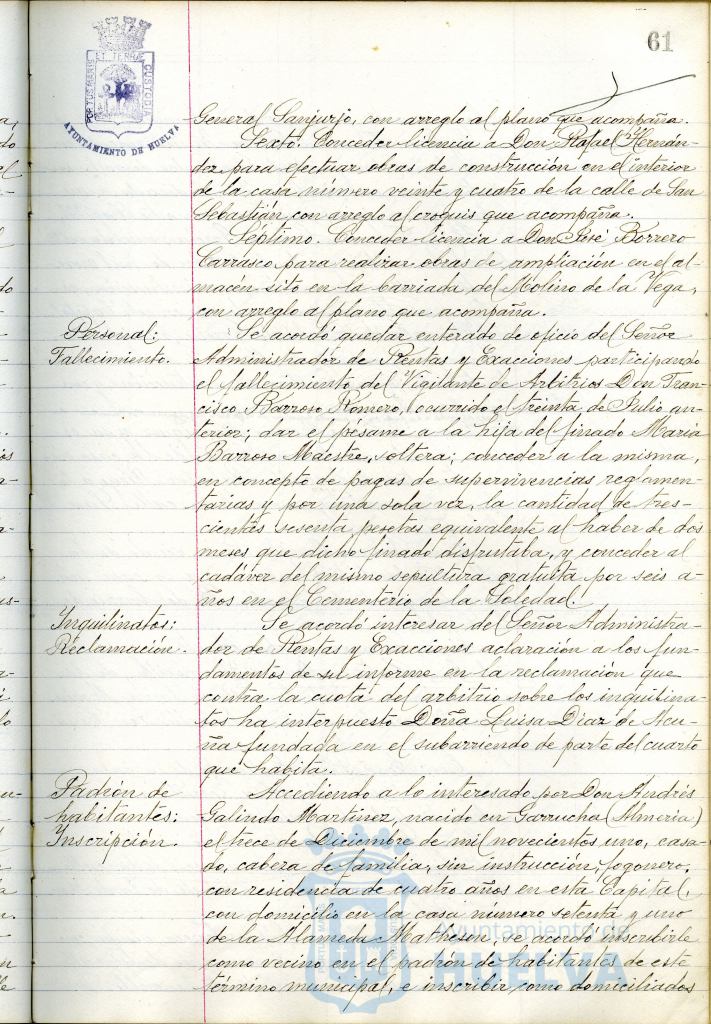 61
PORTUS MARIS ET TERRAE CUSTODIA
AYUNTAMIENTO DE HUELVA
General Sanjurjo, con arreglo al plano que acompaña.
Sexto. Conceder licencia a Don Rafael Hernán-
dez para efectuar obras de construcción en el interior
de la casa número veinte y cuatro de la calle de San
Sebastián, con arreglo al croquis que acompaña.
Séptimo. Conceder licencia a Don José Borrero
Carrasco para realizar obras de ampliación en el al-
macén sito en la barriada del Molino de la Vega,
con arreglo al plano que acompaña.
Personal:
Fallecimiento.
Se acordó quedar enterado de oficio del Señor
Administrador de Rentas y Exacciones participando
el fallecimiento del Vigilante de Arbitrios Don Fran-
cisco Barroso Romero, ocurrido el treinta de Julio an-
terior; dar el pésame a la hija del finado María
Barroso Maestre, soltera; conceder a la misma,
en concepto de pagas de supervivencias reglamen-
tarias y por una sola vez, la cantidad de tres-
cientas sesenta pesetas equivalente al haber de dos
meses que dicho finado disfrutaba, y conceder al
cadáver del mismo sepultura gratuita por seis a-
ños en el Cementerio de la Soledad.
Inquilinatos:
Reclamación.
Se acordó interesar del Señor Administra-
dor de Rentas y Exacciones aclaración a los fun-
damentos de su informe en la reclamación que
contra la cuota del arbitrio sobre los inquilina-
tos ha interpuesto Doña Luisa Díaz de Acu-
ña fundada en el subarriendo de parte del cuarto
que habita.
Padrón de
habitantes:
Inscripción.
Accediendo a lo interesado por Don Andrés
Galindo Martínez, nacido en Garrucha (Almería)
el trece de Diciembre de mil novecientos uno, casa-
do, cabeza de familia, sin instrucción, fogonero,
con residencia de cuatro años en esta Capital,
con domicilio en la casa número setenta y uno
de la Alameda Matheson, se acordó inscribirle
como vecino en el padrón de habitantes de este
término municipal, e inscribir como domiciliados
Ayuntamiento de
HUELVA